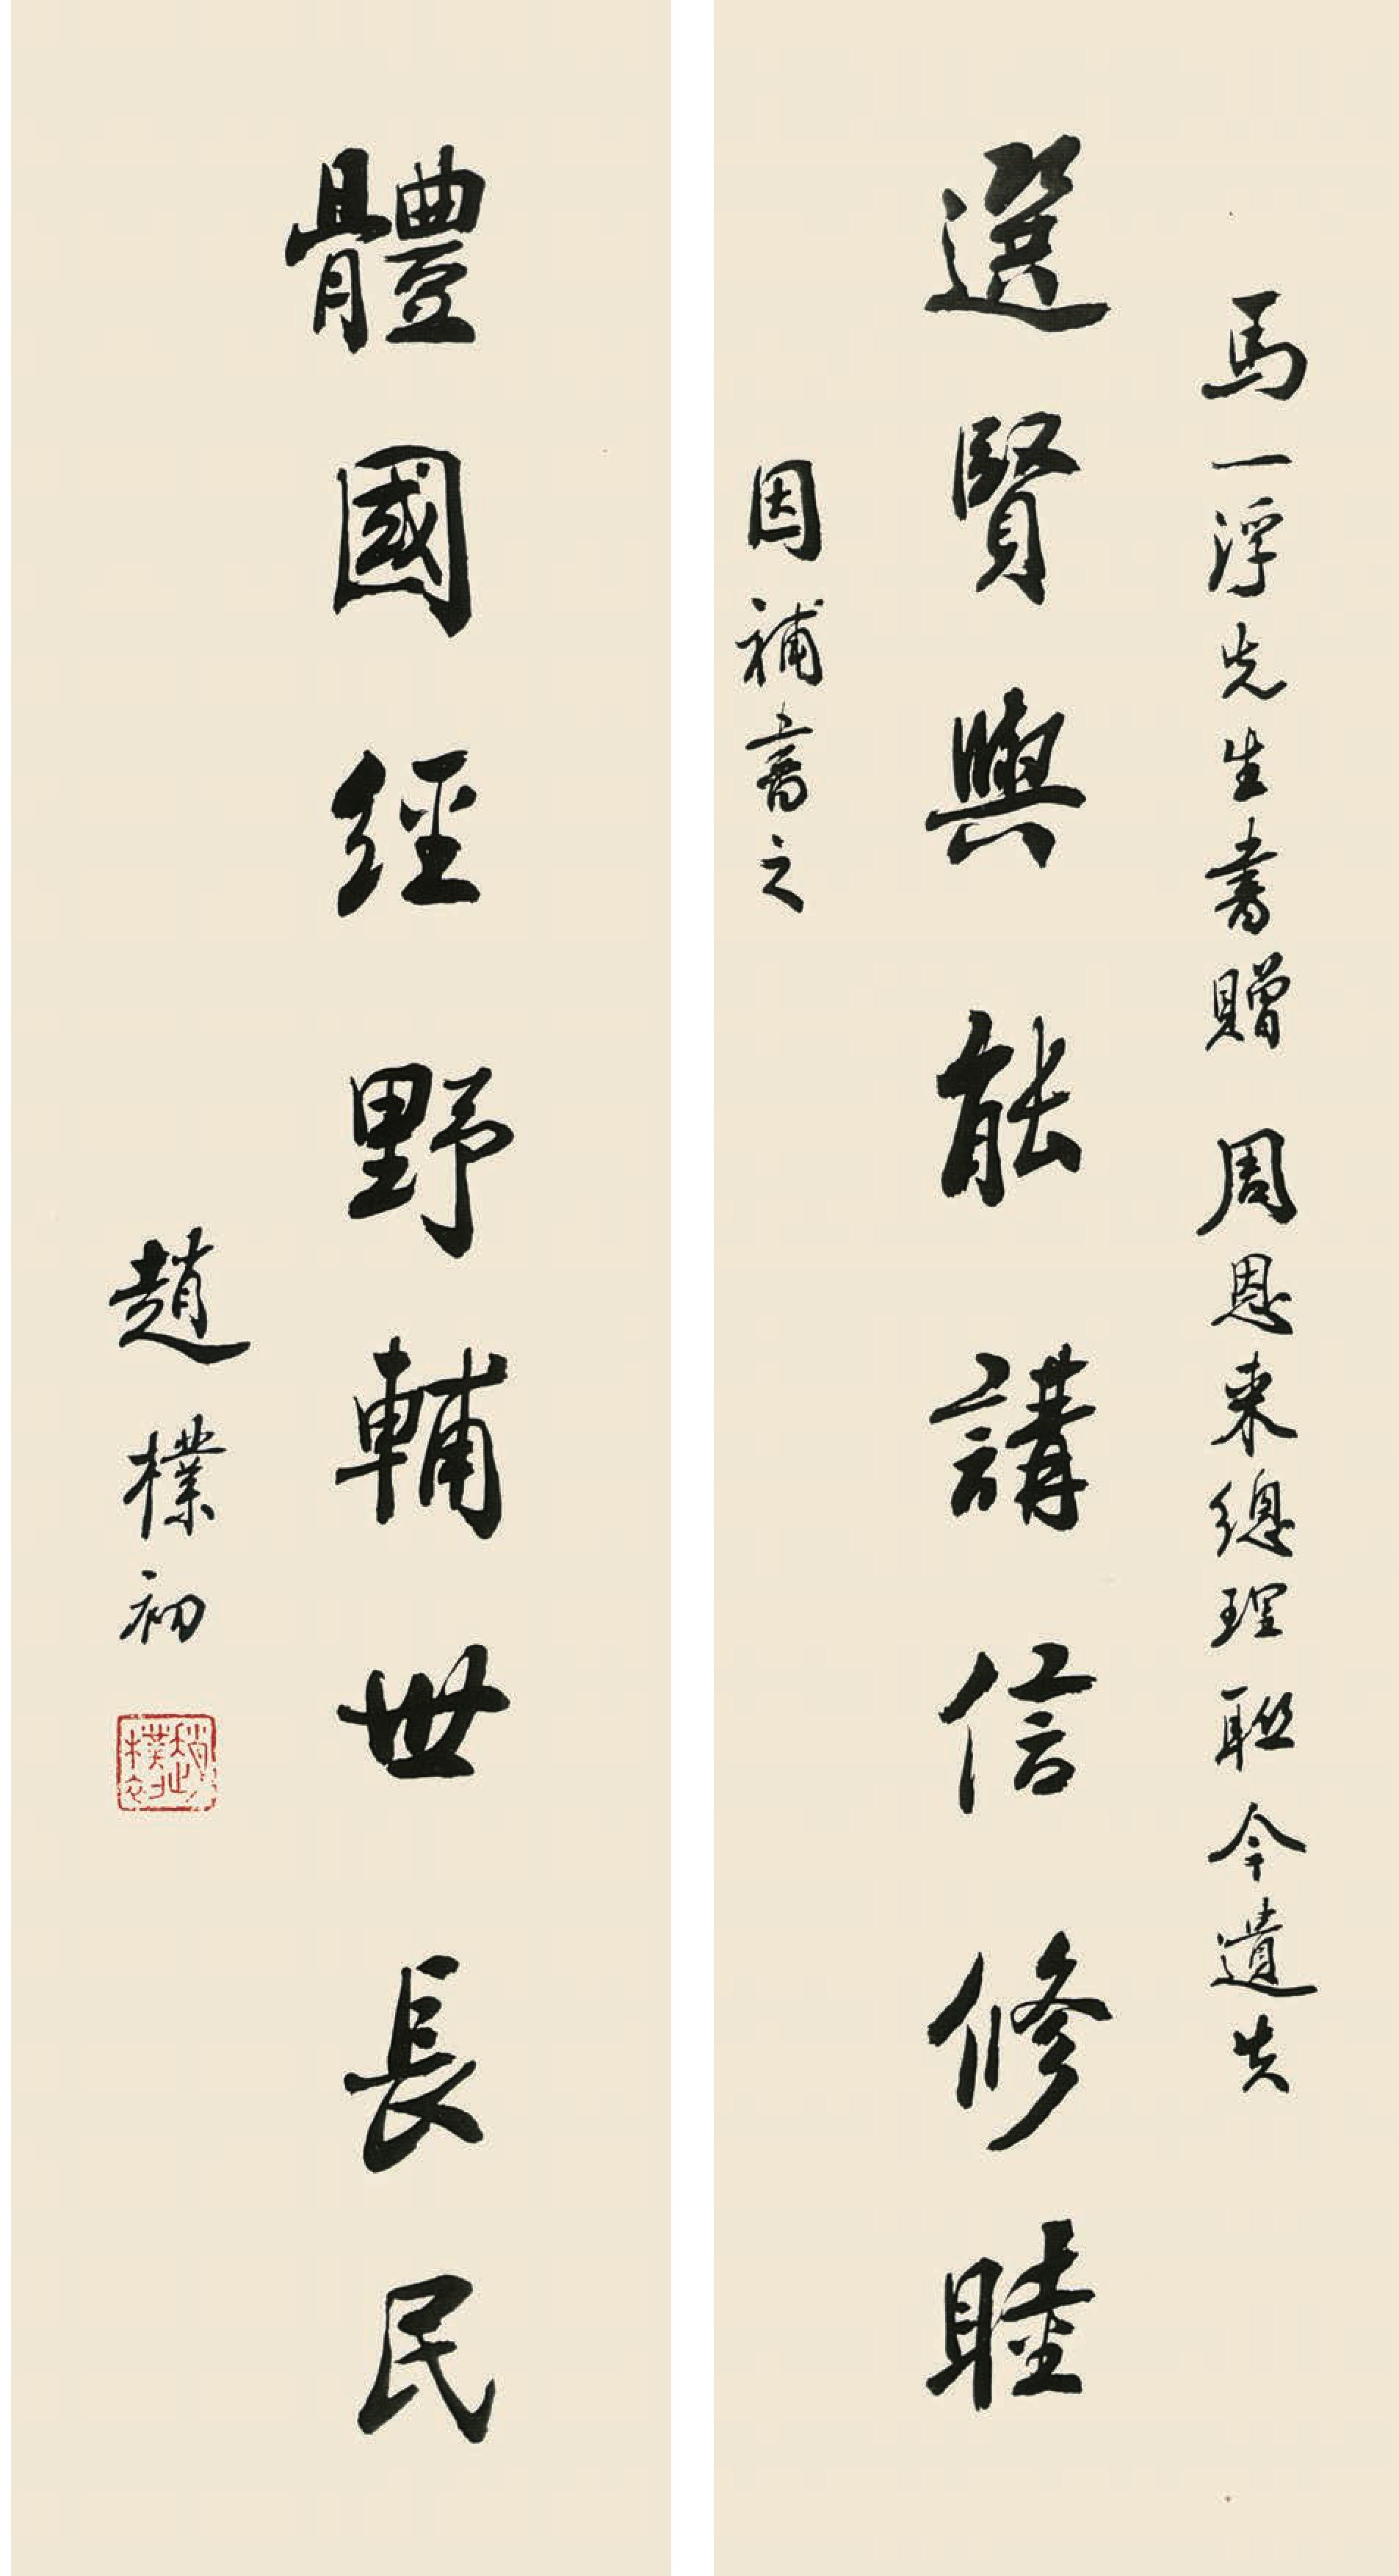 馬一浮先生書贈 周恩来總理聯今遺失
選賢與能講信修睦
因補書之
體國經野輔世長民
趙樸初
趙樸初